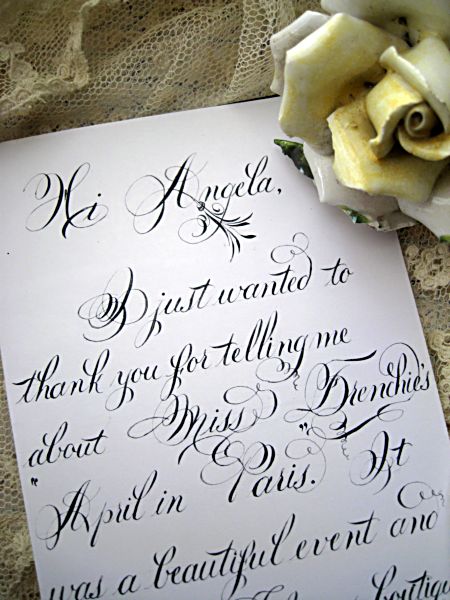 Hi Angela,
I just wanted to
thank you for telling me
about Miss Frenchie's
"April in Paris." It
was a beautiful event and
boutique